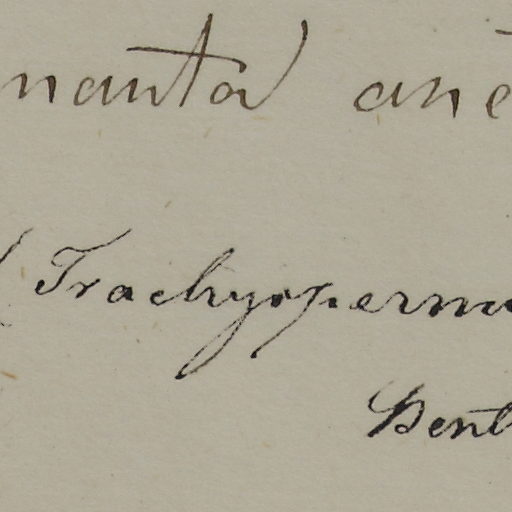 nanta ane
(Trachysperm
Bent